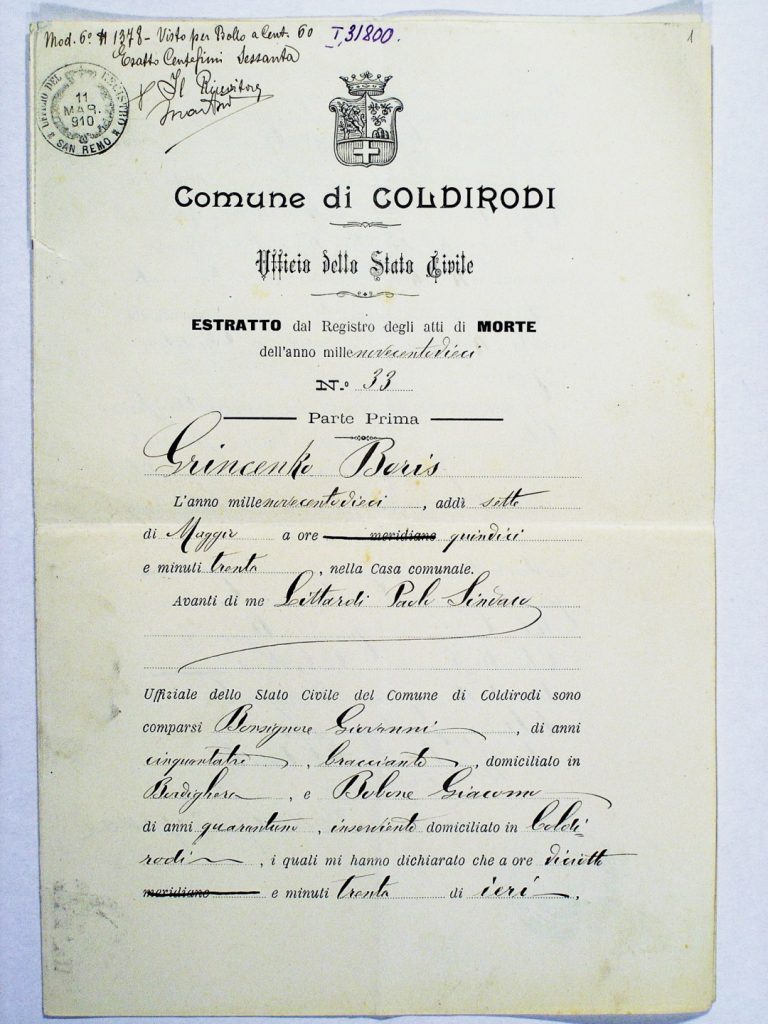 Mod. 6º N 1378 - Visto per Bollo a Cent. 60
I, 31800.
1
Esatto Centesimi Sessanta
Il Ricevitore
UFFICIO DEL REGISTRO
11
MAR.
910
SAN REMO
Comune di COLDIRODI
Ufficio dello Stato Civile
ESTRATTO dal Registro degli atti di MORTE
dell'anno millenovecentodieci
N.º 33
Parte Prima
Grincenko Boris
L'anno millenovecentodieci, addì sette
di Maggio a ore meridiane quindici
e minuti trenta, nella Casa comunale.
Avanti di me Littardi Paolo Sindaco
Uffiziale dello Stato Civile del Comune di Coldirodi sono
comparsi Bonsignore Giovanni, di anni
cinquantatrè, bracciante, domiciliato in
Bordighera, e Bobone Giacomo
di anni quarantuno, inserviente domiciliato in Coldi-
rodi, i quali mi hanno dichiarato che a ore diciotto
meridiane e minuti trenta di ieri,